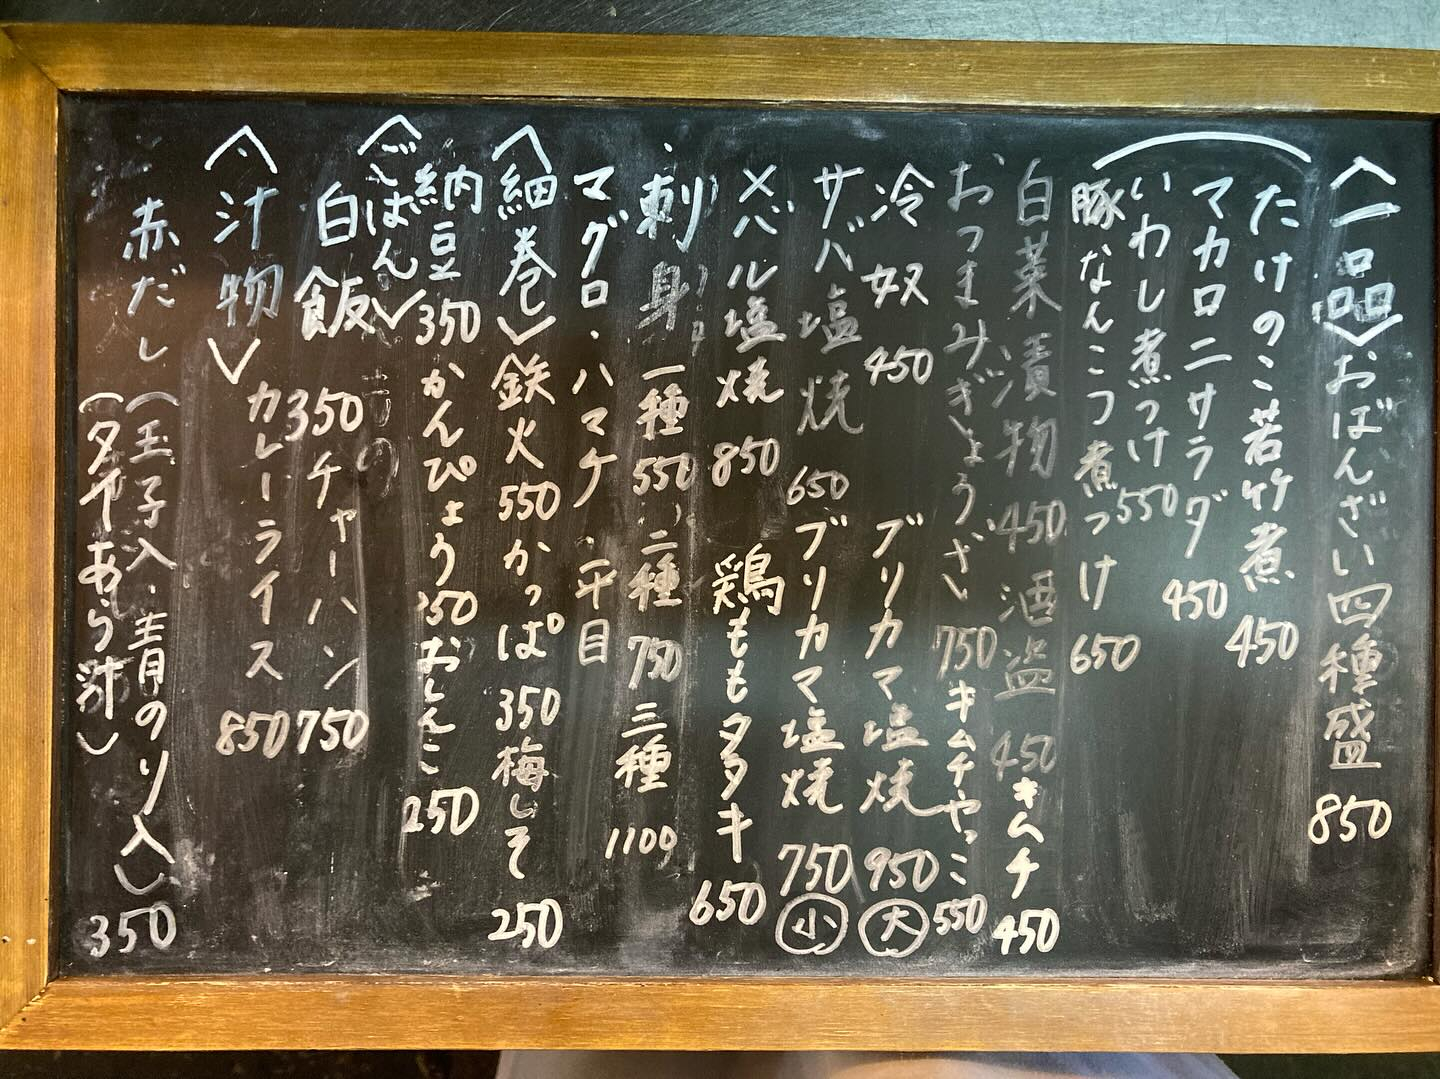 〈一品〉おばんざい四種盛 850
たけのこ若竹煮 450
マカロニサラダ 450
いわし煮つけ 550
豚なんこつ煮つけ 650
白菜漬物 450 酒盗 450 キムチ 450
おつまみぎょうざい 750 キムチやっこ 550
冷奴 450 ブリカマ塩焼 950 大
サバ塩焼 650 ブリカマ塩焼 750 小
メバル塩焼 850 鶏ももタタキ 650
・刺身 一種 550、二種 750 三種 1100
マグロ・ハマチ・平目
〈細巻〉鉄火 550 かっぱ 350 梅しそ 250
納豆 350 かんぴょう 350 おしんこ 250
〈ごはん〉
白飯 350 チャーハン 750
カレーライス 850
〈汁物〉
赤だし(玉子入・青のり入) 350
(タイあら汁)